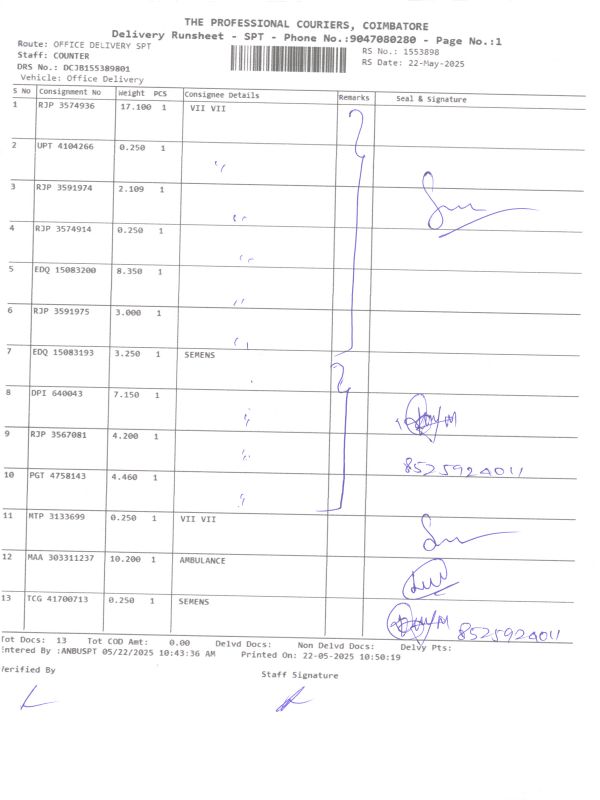 THE PROFESSIONAL COURIERS, COIMBATORE
Delivery Runsheet - SPT - Phone No.:9047080280 - Page No.:1
Route: OFFICE DELIVERY SPT
RS No.: 1553898
Staff: COUNTER
RS Date: 22-May-2025
DRS No.: DCJB155389801
Vehicle: Office Delivery
S No Consignment No Weight PCS Consignee Details Remarks Seal & Signature
1 RJP 3574936 17.100 1 VII VII
2 UPT 4104266 0.250 1 〃
3 RJP 3591974 2.109 1 〃
4 RJP 3574914 0.250 1 〃
5 EDQ 15083200 8.350 1 〃
6 RJP 3591975 3.000 1 〃
7 EDQ 15083193 3.250 1 SEMENS
8 DPI 640043 7.150 1 〃
9 RJP 3567081 4.200 1 〃 8525924011
10 PGT 4758143 4.460 1 〃
11 MTP 3133699 0.250 1 VII VII
12 MAA 303311237 10.200 1 AMBULANCE
13 TCG 41700713 0.250 1 SEMENS 8525924011
Tot Docs: 13 Tot COD Amt: 0.00 Delvd Docs: Non Delvd Docs: Delvy Pts:
Entered By :ANBUSPT 05/22/2025 10:43:36 AM Printed On: 22-05-2025 10:50:19
Verified By
Staff Signature